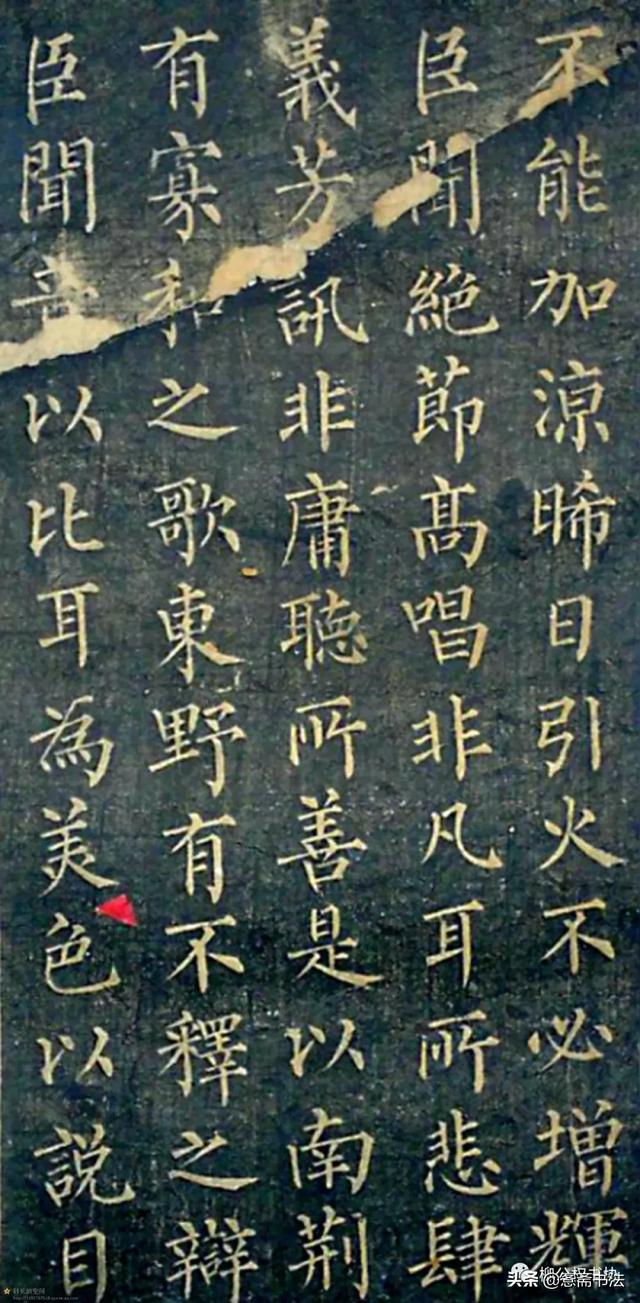 不能加涼晞日引火不必增輝
臣聞絶節髙唱非凡耳所悲肆
義芳訊非庸聽所善是以南荊
有寡和之歌東野有不釋之辯
臣聞音以比耳為美色以説目
柳公权书协
头条
斋书法